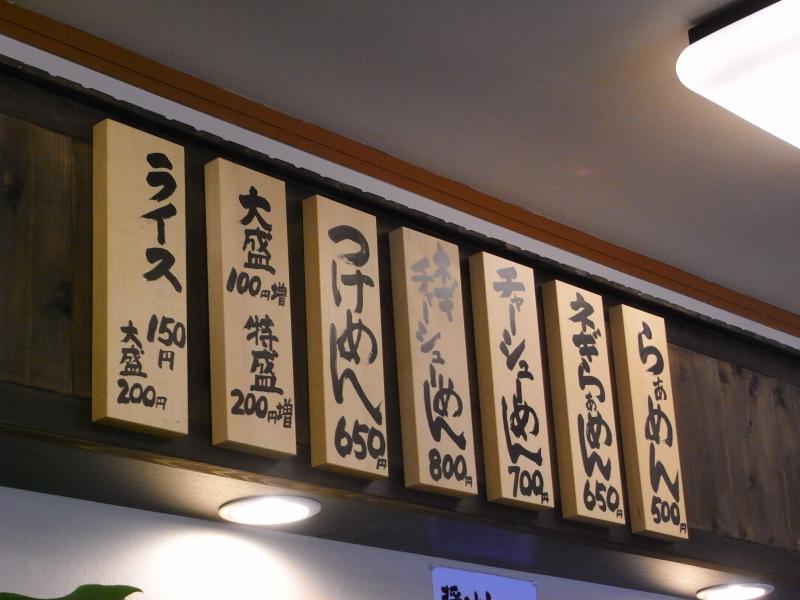 らぁめん
500円
ネギらぁめん
650円
チャーシューめん
700円
ネギ
チャーシューめん
800円
つけめん
650円
大盛
100円増
特盛
200円増
ライス
150円
大盛
200円